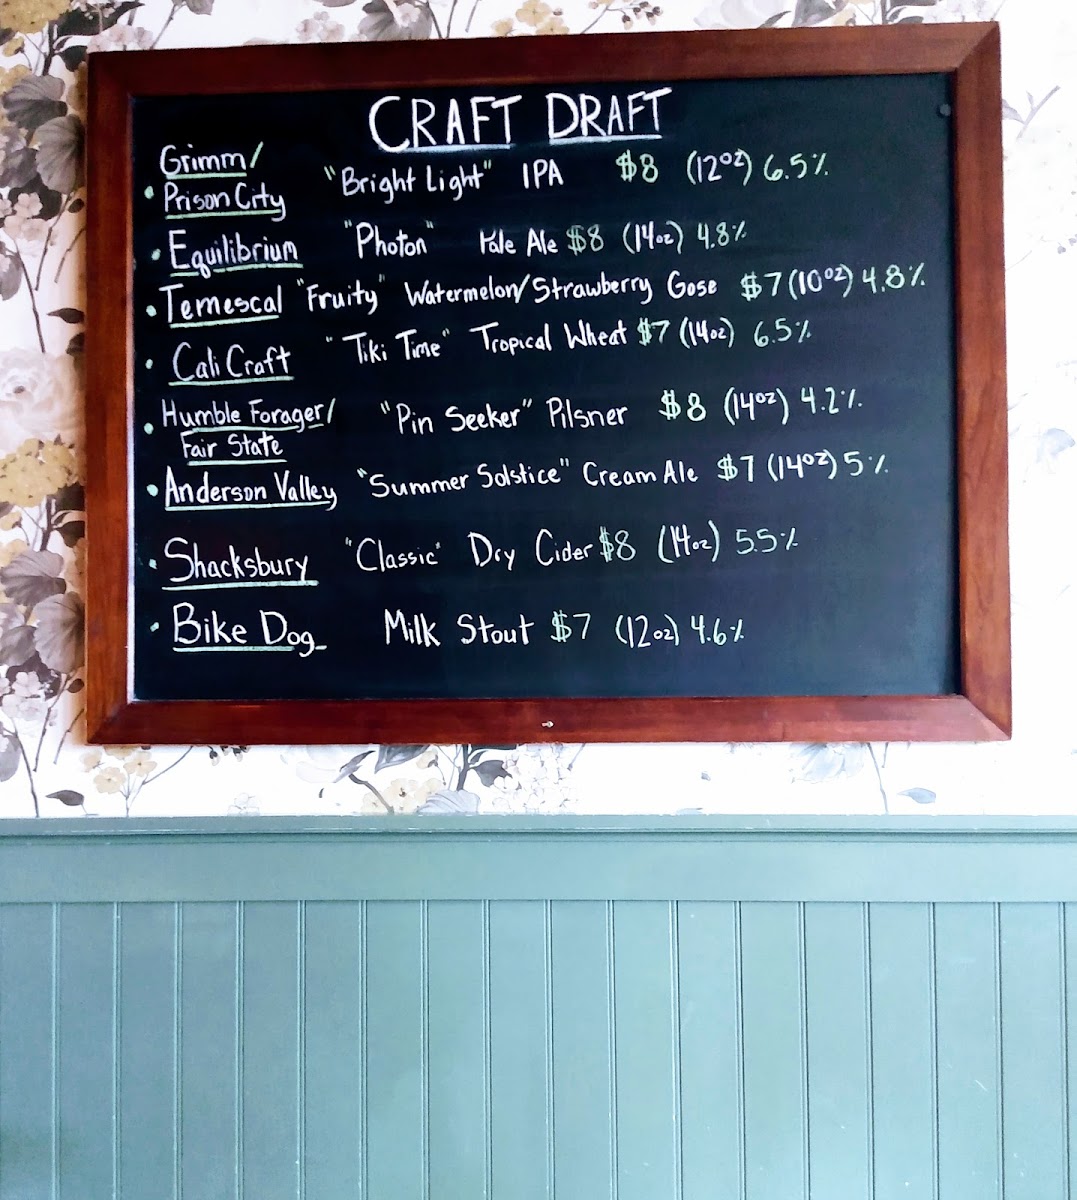 CRAFT DRAFT
Grimm/
• Prison City "Bright Light" IPA $8 (12oz) 6.5%
• Equilibrium "Photon" Pale Ale $8 (14oz) 4.8%
• Temescal "Fruity" Watermelon/Strawberry Gose $7 (10oz) 4.8%
• Cali Craft "Tiki Time" Tropical Wheat $7 (14oz) 6.5%
• Humble Forager/ "Pin Seeker" Pilsner $8 (14oz) 4.2%
Fair State
• Anderson Valley "Summer Solstice" Cream Ale $7 (14oz) 5%
• Shacksbury "Classic" Dry Cider $8 (14oz) 5.5%
• Bike Dog Milk Stout $7 (12oz) 4.6%